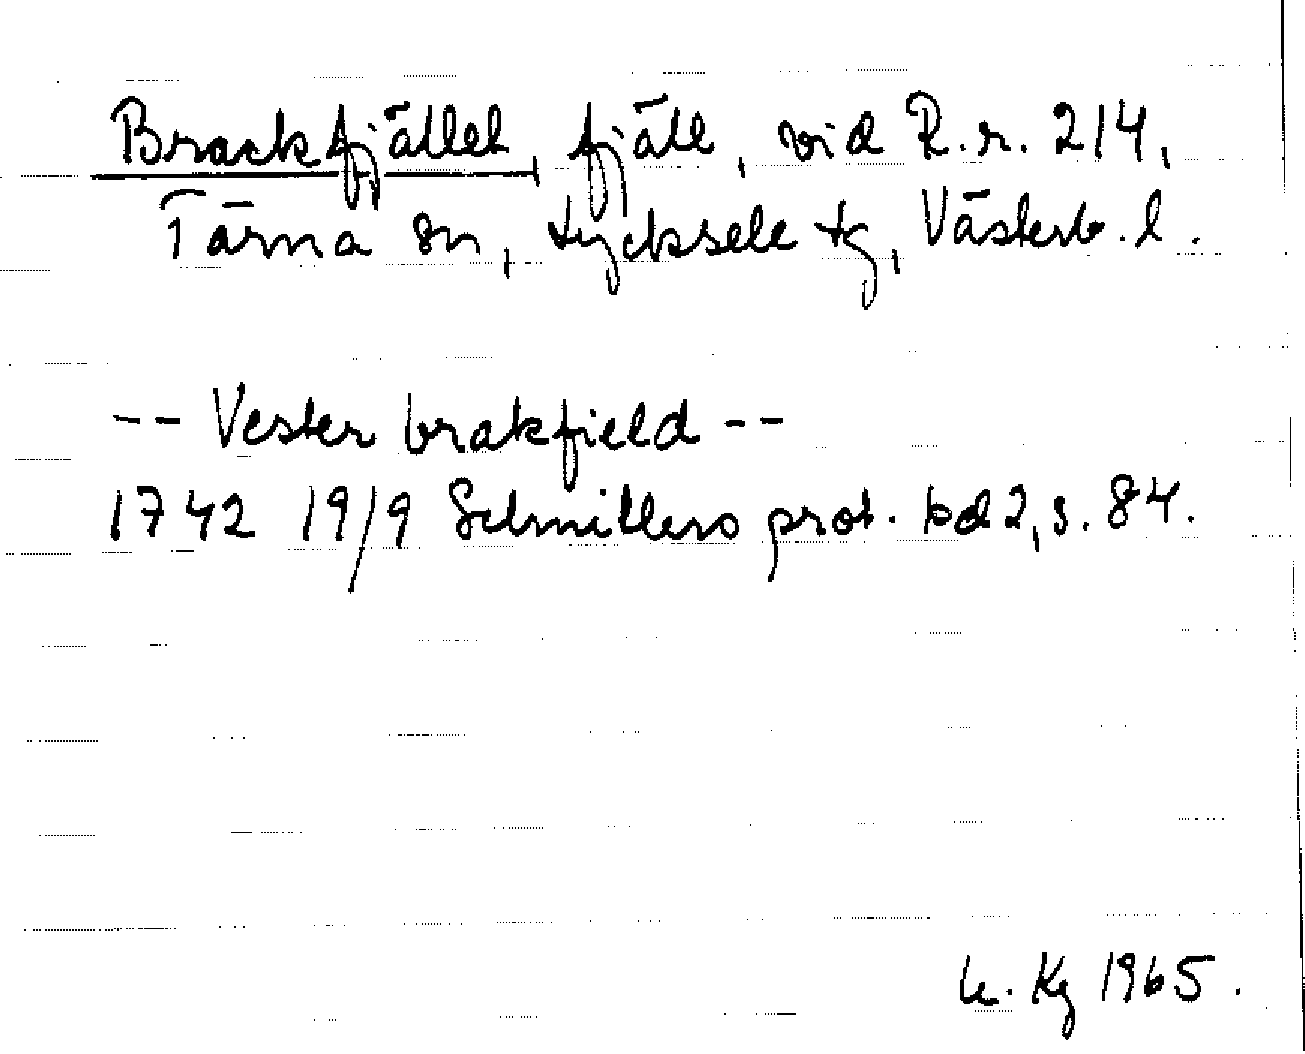 Brackfjället, fjäll, vid R.r. 214,
Tärna sn, Lycksele tg, Västerb. l.
-- Vester brakfield --
1742 19/9 Schnitlers prot. bd 2, s. 84.
Kg 1965.